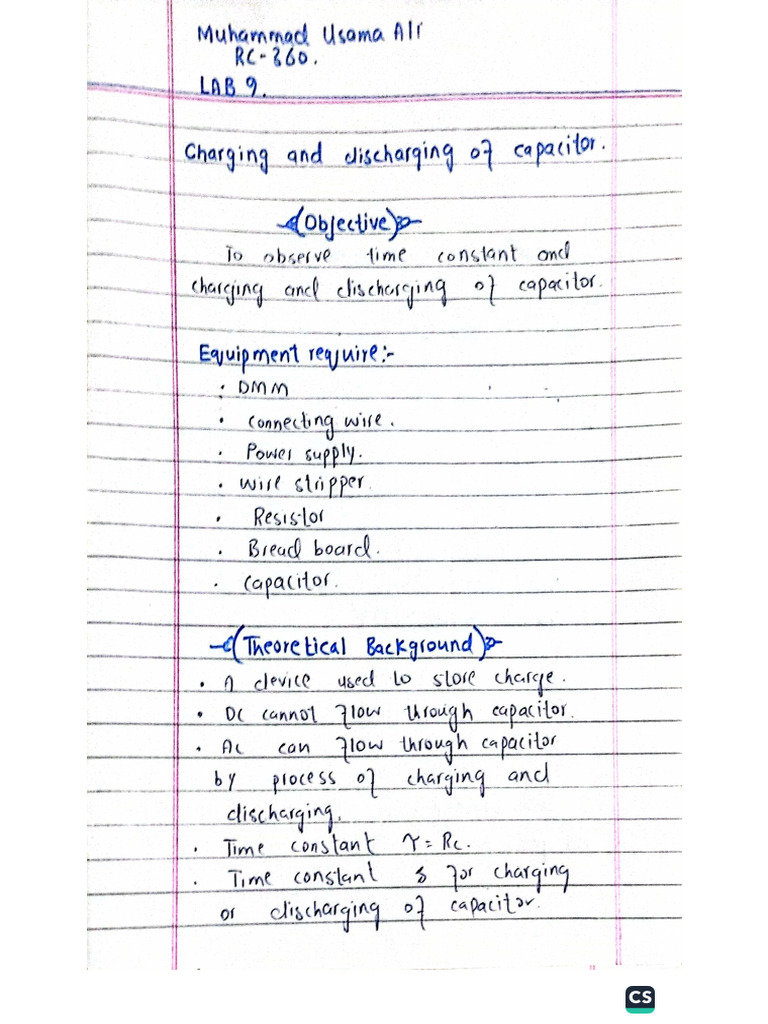 Muhammad Usama Ali
RC-360.
LAB 9.
Charging and discharging of capacitor.
(Objective)
To observe time constant and
charging and discharging of capacitor.
Equipment require:-
• DMM
• Connecting wire.
• Power supply.
• wire stripper.
• Resistor
• Bread board.
• Capacitor.
(Theoretical Background)
• A device used to store charge.
• DC cannot flow through capacitor.
• AC can flow through capacitor
by process of charging and
discharging.
• Time constant τ = RC.
• Time constant for charging
or discharging of capacitor.
CS